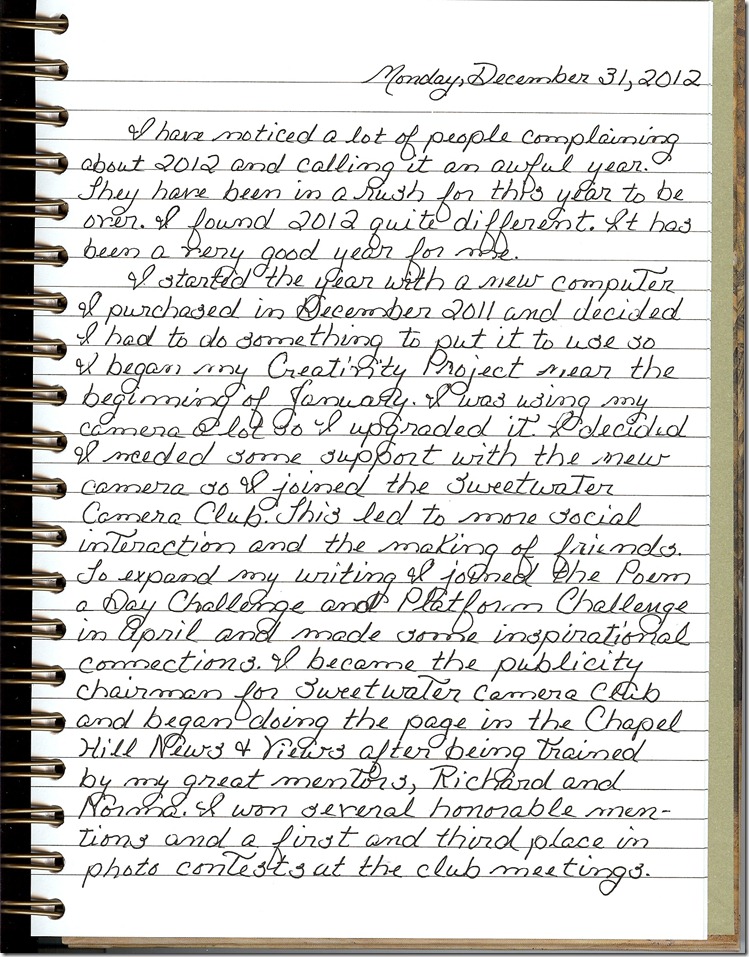 Monday, December 31, 2012
I have noticed a lot of people complaining
about 2012 and calling it an awful year.
They have been in a rush for this year to be
over. I found 2012 quite different. It has
been a very good year for me.
I started the year with a new computer
I purchased in December 2011 and decided
I had to do something to put it to use so
I began my Creativity Project near the
beginning of January. I was using my
camera a lot so I upgraded it. I decided
I needed some support with the new
camera so I joined the Sweetwater
Camera Club. This led to more social
interaction and the making of friends.
To expand my writing I joined the Poem
a Day Challenge and Platform Challenge
in April and made some inspirational
connections. I became the publicity
chairman for Sweetwater Camera Club
and began doing the page in the Chapel
Hill News & Views after being trained
by my great mentors, Richard and
Norma. I won several honorable men-
tions and a first and third place in
photo contests at the club meetings.